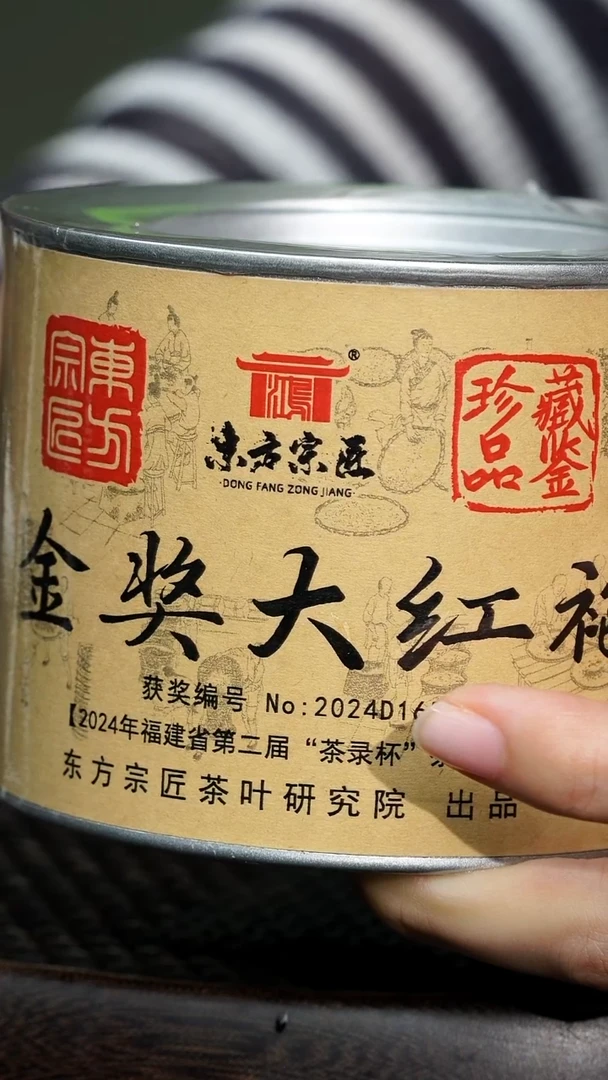 東方宗匠
鴻
®
東方宗匠
·DONG FANG ZONG JIANG·
藏鉴珍品
金奖大红袍
获奖编号 No:2024D16
【2024年福建省第二届“茶录杯”
东方宗匠茶叶研究院 出品